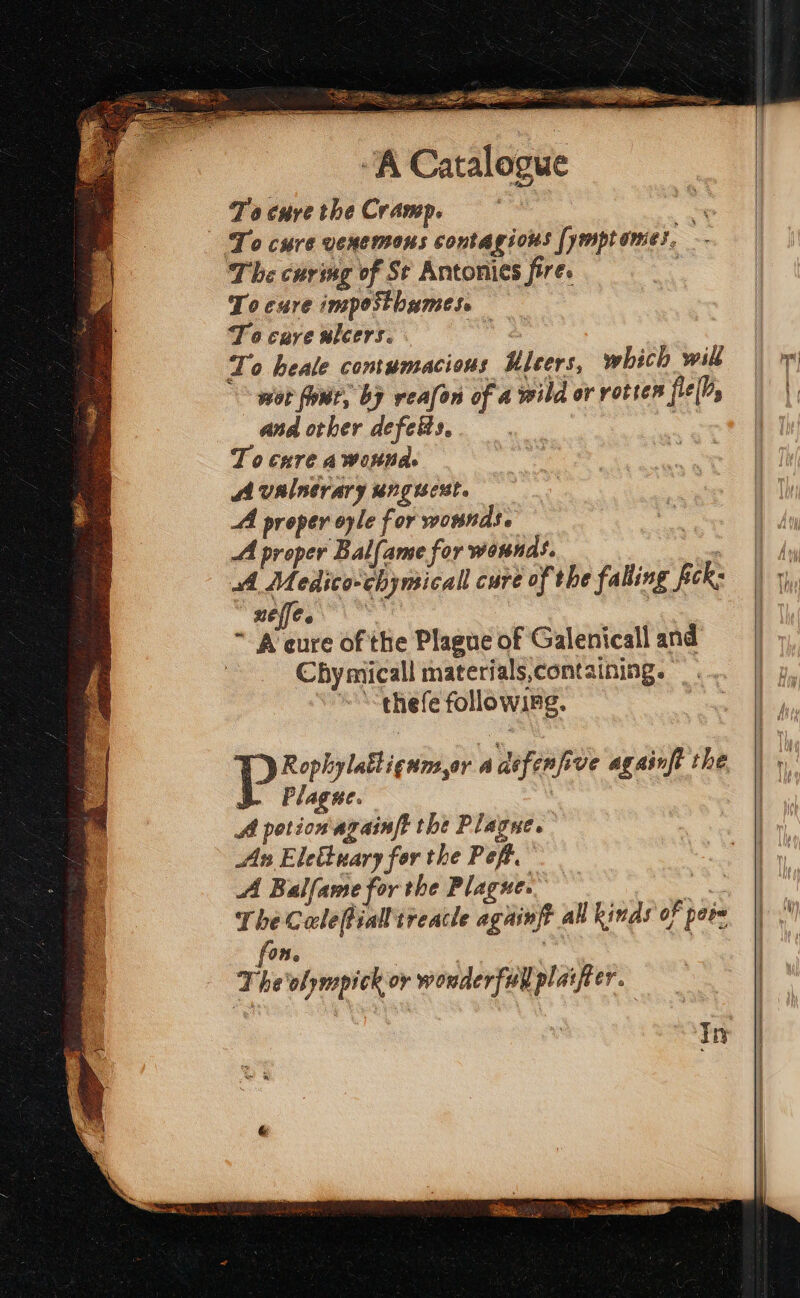 A Catalogue
To cure the Cramp.
To cure venemous contagious ſymptomes.
The curing of St Antonies fire.
To cure impoſthumes.
To cure ulcers.
To heale contumacious Ulcers, which will
not ſhut, by reaſon of a wild or rotten fleſh,
and other defects.
To cure a wound.
A vulnerary unguent.
A proper oyle for wounds.
A proper Balſame for wounds.
A Medico-chymicall cure of the falling ſick-
neſſe.
A cure of the Plague of Galenicall and
Chymicall materials, containing
theſe following.
PRophylacticum, or a defenſive againſt the
Plague.
A potion againſt the Plague.
An Electuary for the Peſt.
A Balſame for the Plague.
The Cæleſtiall treacle againſt all kinds of poi-
ſon.
The olympick or wonderfull plaiſter.
In